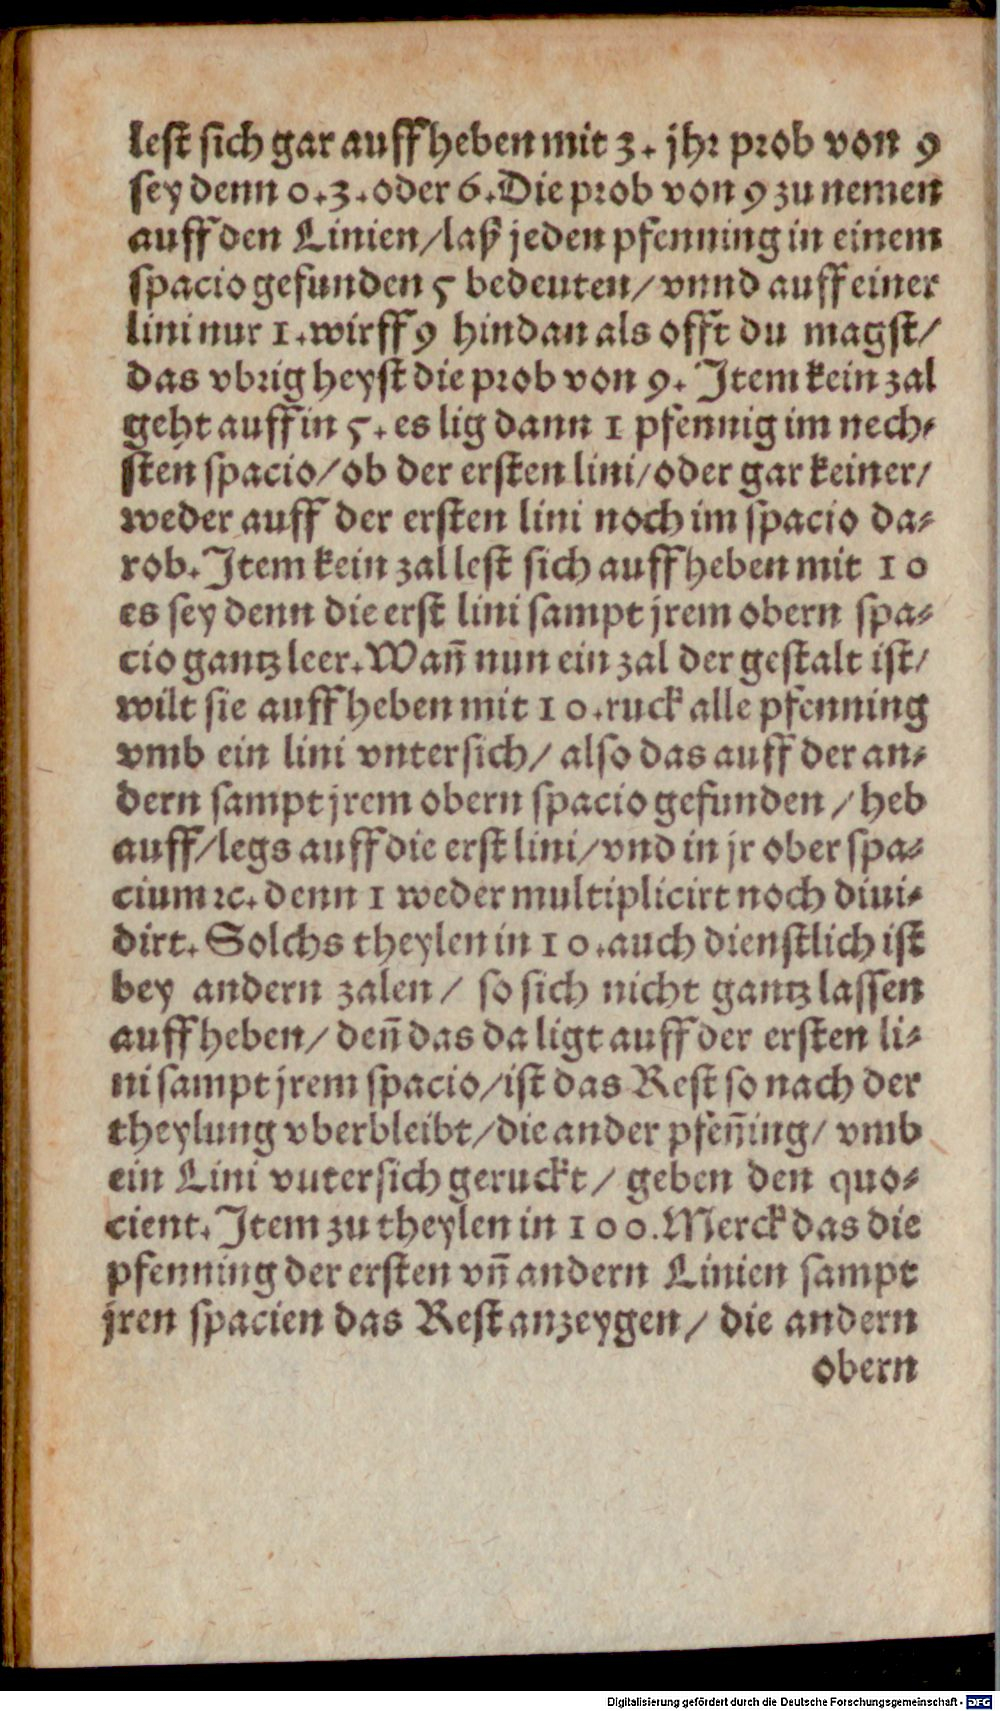 lest sich gar auff heben mit 3. jhr prob von 9
sey denn 0.3. oder 6. Die prob von 9 zu nemen
auff den Linien/laß jeden pfenning in einem
spacio gefunden 5 bedeuten/ vnnd auff einer
lini nur 1. wirff 9 hindan als offt du magst/
das vbrig heyst die prob von 9. Item kein zal
geht auff in 5. es lig dann 1 pfennig im nech-
sten spacio/ ob der ersten lini/ oder gar keiner/
weder auff der ersten lini noch im spacio da-
rob. Item kein zal lest sich auff heben mit 10
es sey denn die erst lini sampt jrem obern spa-
cio gantz leer. Wañ nun ein zal der gestalt ist/
wilt sie auff heben mit 10. ruck alle pfenning
vmb ein lini vntersich/ also das auff der an-
dern sampt jrem obern spacio gefunden / heb
auff/legs auff die erst lini/ vnd in jr ober spa-
cium ꝛc. denn 1 weder multiplicirt noch diui-
dirt. Solchs theylen in 10. auch dienstlich ist
bey andern zalen/ so sich nicht gantz lassen
auff heben/ deñ das da ligt auff der ersten li-
ni sampt jrem spacio/ist das Rest so nach der
theylung vberbleibt/die ander pfeñing/ vmb
ein Lini vutersich geruckt/ geben den quo-
cient. Item zu theylen in 100. Merck das die
pfenning der ersten vñ andern Linien sampt
jren spacien das Rest anzeygen/ die andern
obern
Digitalisierung gefördert durch die Deutsche Forschungsgemeinschaft - DFG